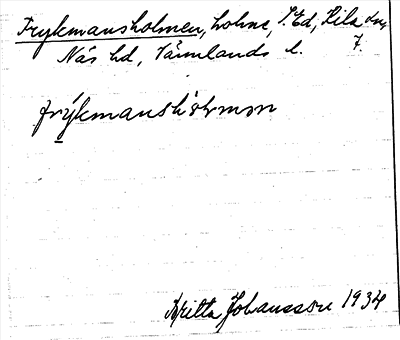 Frykmansholmen, holme, S. Ed, Lila äng
Näs hd, Värmlands l. 7.
frýkmanshòrmən
Britta Johansson 1934